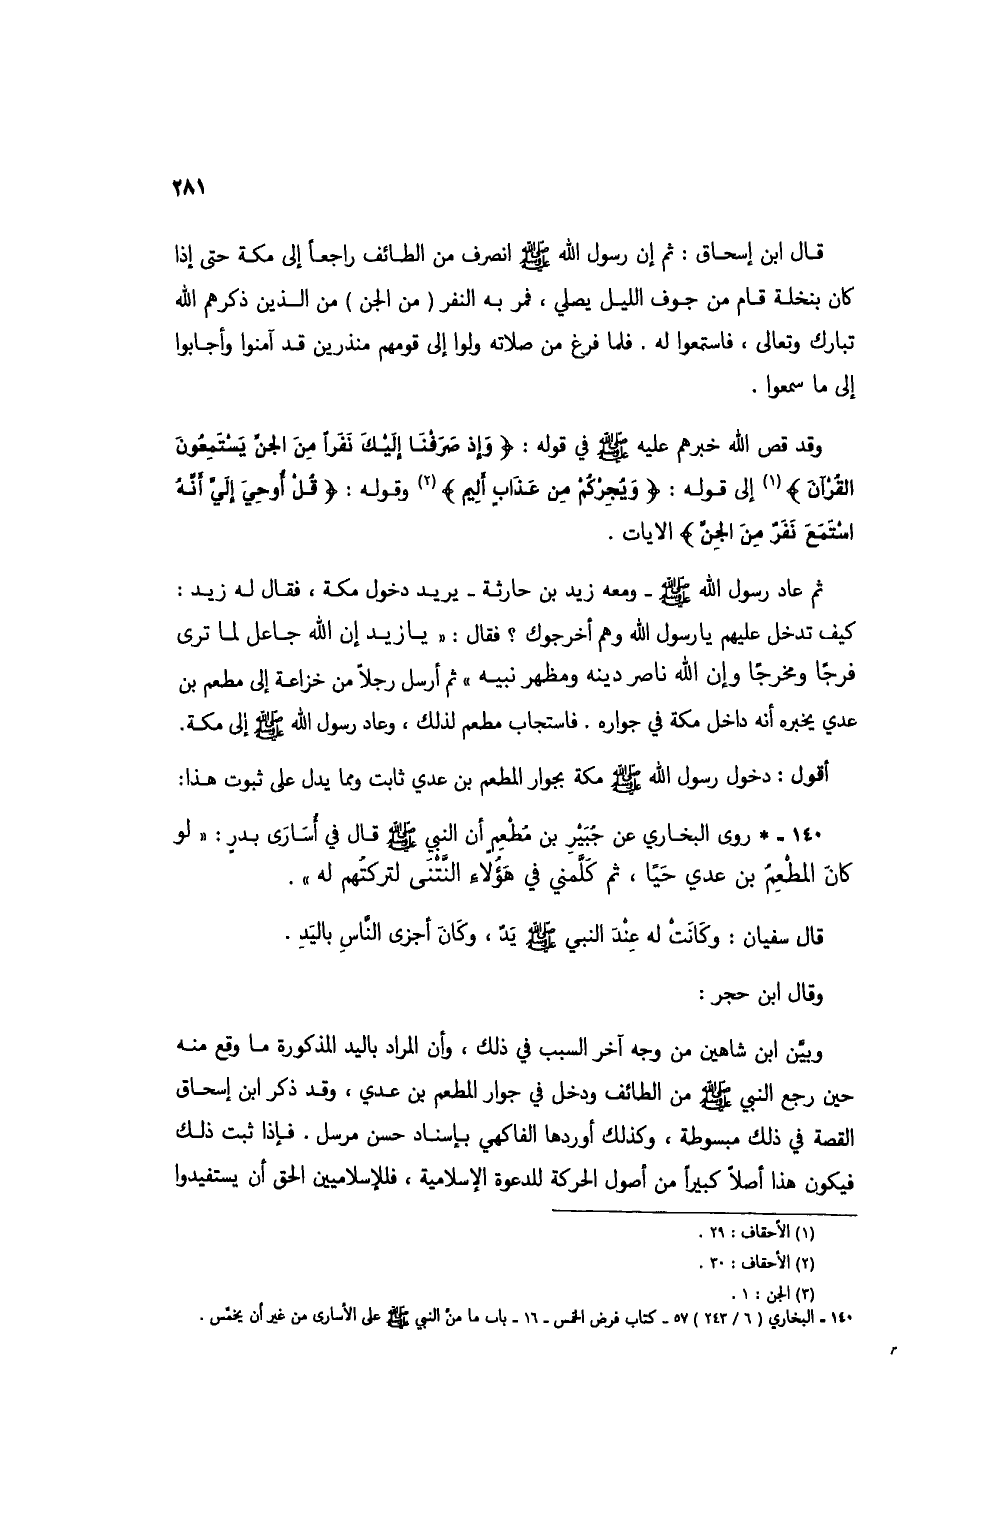 ٢٨١
قال ابن إسحاق : ثم إن رسول الله ﷺ انصرف من الطائف راجعاً إلى مكة حتى إذا
كان بنخلة قام من جوف الليل يصلي ، فمر به النفر ( من الجن ) من الذين ذكرهم الله
تبارك وتعالى ، فاستمعوا له . فلما فرغ من صلاته ولوا إلى قومهم منذرين قد آمنوا وأجابوا
إلى ما سمعوا .
وقد قص الله خبرهم عليه ﷺ في قوله : ﴿ وَإِذ صَرَفْنَا إِلَيْكَ نَفَراً مِنَ الجِنِّ يَسْتَمِعُونَ
القُرْآنَ ﴾(١) إلى قوله : ﴿ وَيُجِرْكُمْ مِن عَذَابٍ أَلِيمٍ ﴾(٢) وقوله : ﴿ قُلْ أُوحِيَ إِلَيَّ أَنَّهُ
اسْتَمَعَ نَفَرٌ مِنَ الجِنِّ ﴾ الايات .
ثم عاد رسول الله ﷺ ـ ومعه زيد بن حارثة ـ يريد دخول مكة ، فقال له زيد :
كيف تدخل عليهم يارسول الله وهم أخرجوك ؟ فقال : « يازيد إن الله جاعل لما ترى
فرجًا ومخرجًا وإن الله ناصر دينه ومظهر نبيه » ثم أرسل رجلاً من خزاعة إلى مطعم بن
عدي يخبره أنه داخل مكة في جواره . فاستجاب مطعم لذلك ، وعاد رسول الله ﷺ إلى مكة.
أقول : دخول رسول الله ﷺ مكة بجوار المطعم بن عدي ثابت ومما يدل على ثبوت هذا:
١٤٠ ـ * روى البخاري عن جُبَيْرِ بن مُطْعِمٍ أن النبي ﷺ قال في أُسَارَى بدرٍ : « لو
كانَ المطْعِمُ بن عدي حَيًا ، ثم كَلَّمني في هَؤُلاءِ النَّتْنَى لتركتُهم له » .
قال سفيان : وكَانَتْ له عِنْدَ النبي ﷺ يَدٌ ، وكَانَ أجزى النَّاسِ باليَدِ .
وقال ابن حجر :
وبيَّن ابن شاهين من وجه آخر السبب في ذلك ، وأن المراد باليد المذكورة ما وقع منه
حين رجع النبي ﷺ من الطائف ودخل في جوار المطعم بن عدي ، وقد ذكر ابن إسحاق
القصة في ذلك مبسوطة ، وكذلك أوردها الفاكهي بإسناد حسن مرسل . فإذا ثبت ذلك
فيكون هذا أصلاً كبيراً من أصول الحركة للدعوة الإسلامية ، فللإسلاميين الحق أن يستفيدوا
(١) الأحقاف : ٢٩ .
(٢) الأحقاف : ٣٠ .
(٣) الجن : ١ .
١٤٠ ـ البخاري ( ٦ / ٢٤٣ ) ٥٧ ـ كتاب فرض الخمس ـ ١٦ ـ باب ما منَّ النبي ﷺ على الأسارى من غير أن يخمّس .
٣